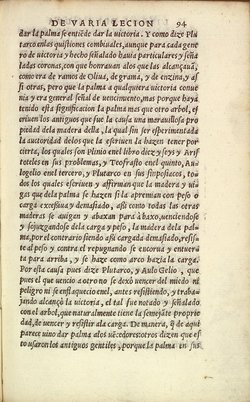 DE VARIA LECION 94
dar la palma se entiẽde dar la uictoria. Y como dize Plu
tarco enlas questiones combiuales, aunque para cada gene
ro de uictoria y hecho señalado hauia particulares y seña
ladas coronas, con que honrauan alos que las alcançauã,
como era de ramos de Oliua, de grama, y de enzina, y aſ
ſi otras, pero que la palma a qualquiera uictoria conue
nia y era general señal de uencimiento, mas porque haya
tenido esta significacion la palma mas que otro arbol, e
criuen los antiguos que fue la causa una marauillosa pro
piedad dela madera della, la qual sin ser esperimentada
la auctoridad delos que la escriuen la hazen tener por
cierta, los quales son Plinio enel libro diez y seys y Aris
toteles en sus problemas, y Teofrasto enel quinto, Au
logelio enel tercero, y Plutarco en sus simposiacos, to
dos los quales escriuen y affirman que la madera y ui
gas que dela palma se hazen si la apremian con peso o
carga excessiua y demasiado, assi como todas las otras
maderas se auigan y abaxan para abaxo, uenciendose
y sojuzgandose dela carga y peso, la madera dela pal
ma, por el contrario siendo assi cargada demasiado, resis
te al peso y contra el repugnando se encorua y enhuerta
para arriba, y se haze como arco hazia la carga.
Por esta causa pues dize Plutarco, y Aulo Gelio, que
pues el que uencio a otro no se dexò uencer del miedo ni
peligro ni se enflaquecio enel, antes resistiendo, y traba
jando alcançò la uictoria, el tal fue notado y señalado
con el arbol, que naturalmente tiene la semejãte proprie
dad, de uencer y resistir ala carga. De manera, q̃ de aqui
parece uino dar palma alos uẽcedores otros dizen que es
to usaron los antiguos gentiles, porque la palma en sus